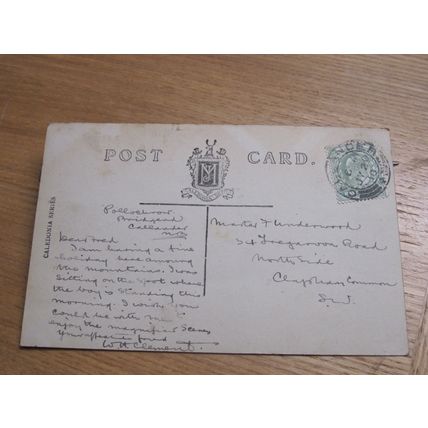 POST CARD.
CALEDONIA SERIES
Bridgend
Callander
N.B.
Dear Fred
I am having a fine
holiday here among
the mountains. I was
sitting on the spot where
the boy is standing this
morning. I wish you
could be with me
enjoy the magnificent scenes
Your affectionate friend
W. H. Clement.
Master F Underwood
34 Road
North Side
Clapham Common
S.W.